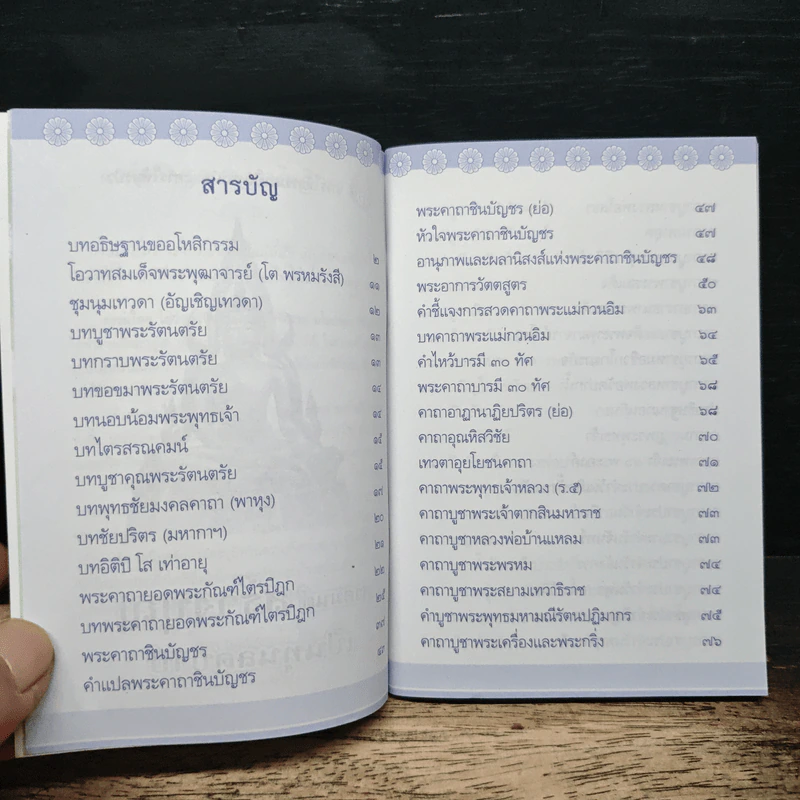 สารบัญ
บทอธิษฐานขออโหสิกรรม ๒
โอวาทสมเด็จพระพุฒาจารย์ (โต พรหมรังสี) ๑๑
ชุมนุมเทวดา (อัญเชิญเทวดา) ๑๒
บทบูชาพระรัตนตรัย ๑๓
บทกราบพระรัตนตรัย ๑๓
บทขอขมาพระรัตนตรัย ๑๔
บทนอบน้อมพระพุทธเจ้า ๑๔
บทไตรสรณคมน์ ๑๕
บทบูชาคุณพระรัตนตรัย ๑๕
บทพุทธชัยมงคลคาถา (พาหุง) ๑๗
บทชัยปริตร (มหากาฯ) ๒๐
บทอิติปิ โส เท่าอายุ ๒๑
พระคาถายอดพระกัณฑ์ไตรปิฎก ๒๒
บทพระคาถายอดพระกัณฑ์ไตรปิฎก ๒๕
พระคาถาชินบัญชร ๓๗
คำแปลพระคาถาชินบัญชร
พระคาถาชินบัญชร (ย่อ) ๔๗
หัวใจพระคาถาชินบัญชร ๔๗
อานุภาพและผลานิสงส์แห่งพระคาถาชินบัญชร ๔๘
พระอาการวัตตสูตร ๕๐
คำชี้แจงการสวดคาถาพระแม่กวนอิม ๖๓
บทคาถาพระแม่กวนอิม ๖๔
คำไหว้บารมี ๓๐ ทัศ ๖๕
พระคาถาบารมี ๓๐ ทัศ ๖๘
คาถาอาฏานาฏิยปริตร (ย่อ) ๖๘
คาถาอุณหิสวิชัย ๗๐
เทวตาอุยโยชนคาถา ๗๑
คาถาพระพุทธเจ้าหลวง (ร.๕) ๗๒
คาถาบูชาพระเจ้าตากสินมหาราช ๗๓
คาถาบูชาหลวงพ่อบ้านแหลม ๗๓
คาถาบูชาพระพรหม ๗๔
คาถาบูชาพระสยามเทวาธิราช ๗๔
คำบูชาพระพุทธมหามณีรัตนปฏิมากร ๗๕
คาถาบูชาพระเครื่องและพระกริ่ง ๗๖